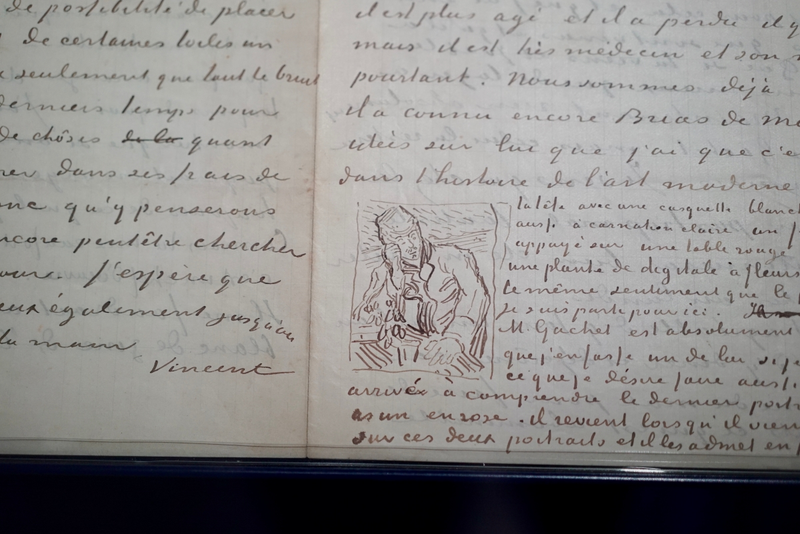 de possibilité de placer
de certaines toiles un
seulement que tout le bruit
derniers temps pour
de chôses de la quant
dans ses frais de
qu'y penserons
encore peutêtre chercher
J'espère que
également jusqu'au
la main
Vincent
il est plus agé et il a perdu il y
mais il est très médecin et son
pourtant. Nous sommes déjà
il a connu encore Brias de
idées sur lui que j'ai que c'e
dans l'histoire de l'art moderne
la tête avec une casquette blanch
aussi à carnation claire un
appuyé sur une table rouge
une plante de digitale à fleurs
le même sentiment que le
je suis parti pour ici.
M. Gachet est absolument
que j'en fasse un de lui
ce que je désire faire aussi
arrivé à comprendre le dernier portr
as un en rose. il revient lorsqu'il vien
sur ces deux portraits et il les admet en